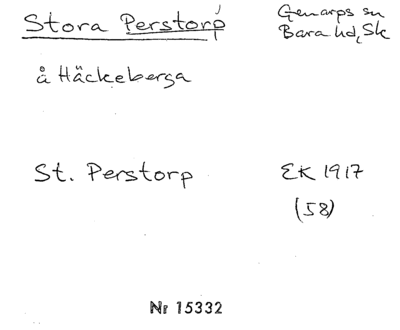 Stora Perstorp
Genarps sn
Bara hd, Sk
å Häckeberga
St. Perstorp
EK 1917
(58)
Nr 15332